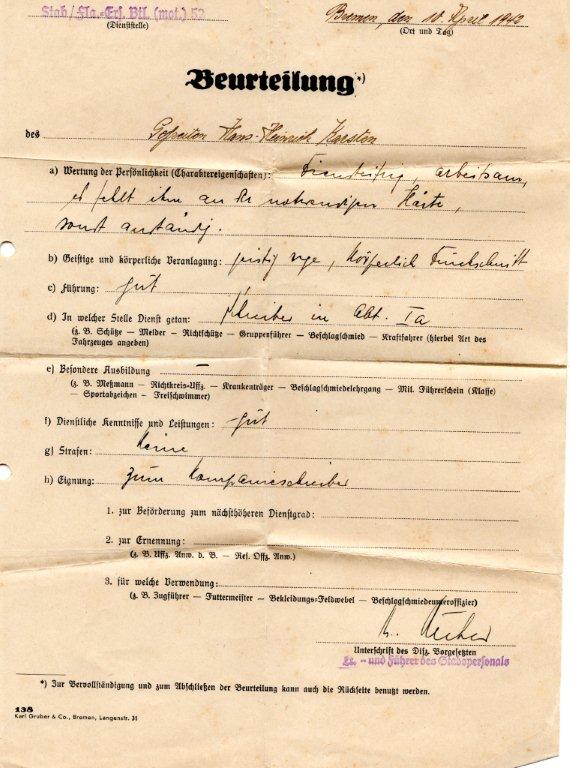 Stab / Fla.-Ers. Btl. (mot.) 52
Bremen, den 10. April 1942
(Dienststelle)
(Ort und Tag)
Beurteilung*)
des Gefreiten Hans-Heinrich Karsten
a) Wertung der Persönlichkeit (Charaktereigenschaften): Diensteifrig, arbeitsam,
es fehlt ihm an der notwendigen Härte,
sonst anständig.
b) Geistige und körperliche Veranlagung: geistig rege, körperlich Durchschnitt
c) Führung: gut
d) In welcher Stelle Dienst getan: Schreiber in Abt. Ia
(z. B. Schütze — Melder — Richtschütze — Gruppenführer — Beschlagschmied — Kraftfahrer (hierbei Art des
Fahrzeuges angeben)
e) Besondere Ausbildung —
(z. B. Meßmann — Richtkreis-Uffz. — Krankenträger — Beschlagschmiedelehrgang — Mil. Führerschein (Klasse)
— Sportabzeichen — Freischwimmer)
f) Dienstliche Kenntnisse und Leistungen: gut
g) Strafen: Keine
h) Eignung: zum Kompanieschreiber
1. zur Beförderung zum nächsthöheren Dienstgrad:
2. zur Ernennung:
(z. B. Uffz. Anw. d. B. — Res. Offz. Anw.)
3. für welche Verwendung:
(z. B. Zugführer — Futtermeister — Bekleidungs-Feldwebel — Beschlagschmiedeunteroffizier)
Unterschrift des Disz. Vorgesetzten
Lt. - und Führer des Stabspersonals
*) Zur Vervollständigung und zum Abschließen der Beurteilung kann auch die Rückseite benutzt werden.
138
Karl Gruber & Co., Bremen, Langenstr. 31